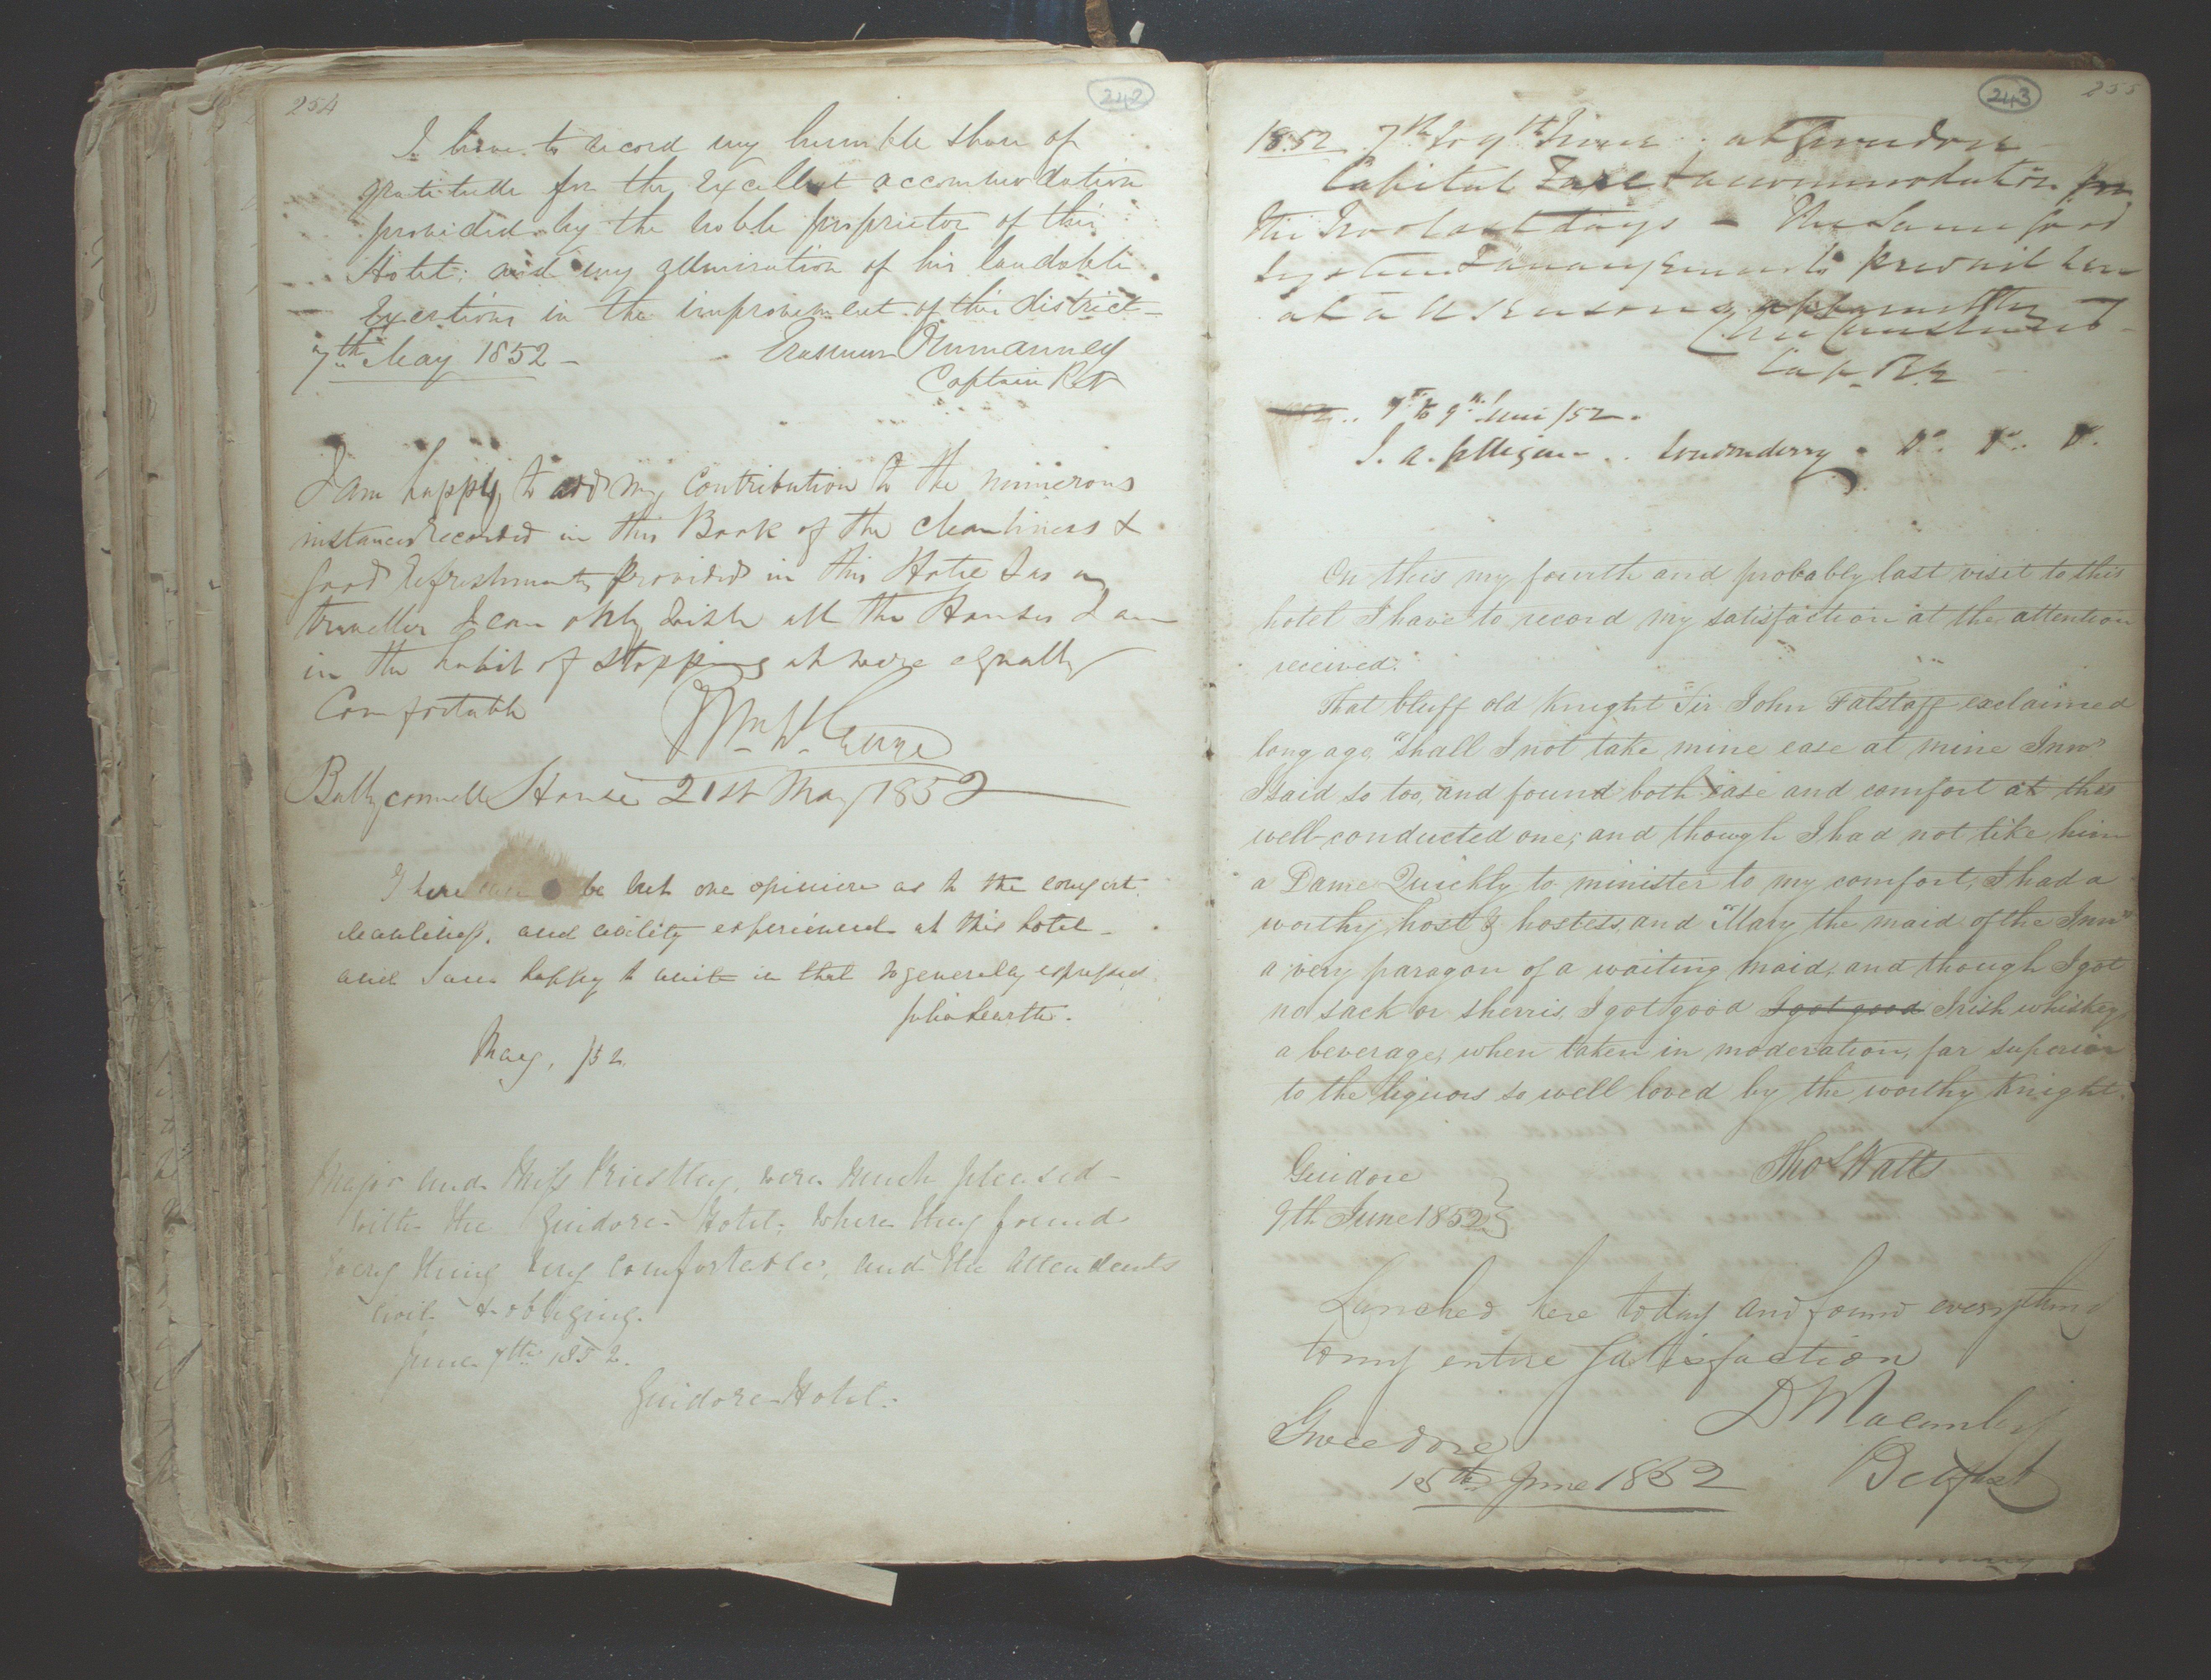 254
242
I have to record my humble share of
gratitude for the excellent accommodation
provided by the noble proprietor of this
Hotel: and my admiration of his laudable
exertions in the improvement of this district —
7th May 1852 — Erasmus Ommanney
Captain RN
I am happy to add my Contribution to the numerous
instances recorded in this Book of the cleanliness &
good refreshments provided in this Hotel & as a
traveller I can only wish all the Houses I am
in the habit of stopping at were equally
Comfortable
Wm H
Ballyconnell House 21st May 1852
There can be but one opinion as to the comfort,
cleanliness, and civility experienced at this hotel —
and I am happy to unite in that so generally expressed.
May, /52.
Major and Miss Priestley, were much pleased —
with the Guidore Hotel, where they found
every thing very comfortable, and the attendants
civil & obliging.
June 7th 1852.
Guidore Hotel.
243
255
1852 7th to 9th June at Gweedore
Capital Fare & accommodation for
the two last days — The same good
system & arrangements prevail here
at all seasons apparently
Capt. R.E
7th to 9th June /52.
Londonderry. Do. Do. Do.
On this my fourth and probably last visit to this
hotel I have to record my satisfaction at the attention
received.
That bluff old Knight Sir John Falstaff exclaimed
long ago, "shall I not take mine ease at mine Inn"
I said so too, and found both ease and comfort at this
well-conducted one; and though I had not like him
a Dame Quickly to minister to my comfort, I had a
worthy host & hostess, and "Mary the maid of the Inn"
a very paragon of a waiting maid; and though I got
no sack or sherris, I got good I got good Irish whiskey,
a beverage, when taken in moderation, far superior
to the liquors so well loved by the worthy Knight.
Guidore Thos Watts
9th June 1852
Lunched here today and found everything
to my entire satisfaction
Gweedore D Macomb
15th June 1852 Belfast